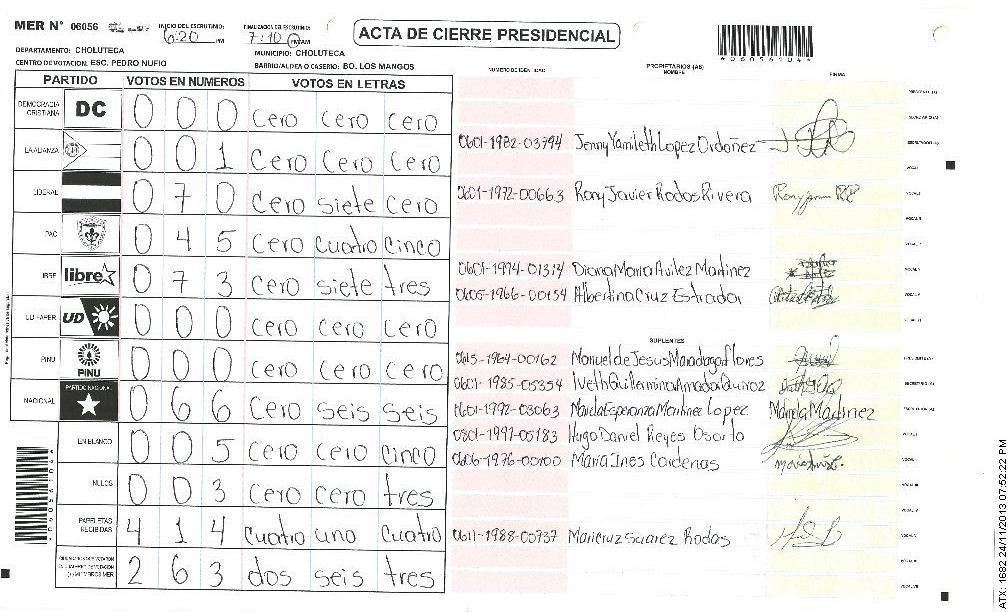 MER N° 06056
INICIO DEL ESCRUTINIO: 6:20 PM
FINALIZACION DEL ESCRUTINIO: 7:10 PM AM
ACTA DE CIERRE PRESIDENCIAL
*06056104*
DEPARTAMENTO: CHOLUTECA
MUNICIPIO: CHOLUTECA
CENTRO DE VOTACION: ESC. PEDRO NUFIO
BARRIO/ALDEA O CASERIO: BO. LOS MANGOS
PARTIDO VOTOS EN NUMEROS VOTOS EN LETRAS
NUMERO DE IDENTIDAD PROPIETARIOS (AS) NOMBRE FIRMA
DEMOCRACIA CRISTIANA DC 0 0 0 cero cero cero
LA ALIANZA 0 0 1 cero cero cero
LIBERAL 0 7 0 cero siete cero
PAC 0 4 5 cero cuatro cinco
LIBRE libre 0 7 3 cero siete tres
UD FAPER UD 0 0 0 cero cero cero
PINU PINU 0 0 0 cero cero cero
NACIONAL PARTIDO NACIONAL 0 6 6 cero seis seis
EN BLANCO 0 0 5 cero cero cinco
NULOS 0 0 3 cero cero tres
PAPELETAS RECIBIDAS 4 1 4 cuatro uno cuatro
2 6 3 dos seis tres
0601-1982-03794 Jenny Yamileth Lopez Ordoñez
0601-1972-00663 Rony Javier Rodas Rivera
0601-1994-01314 Diana Maria Avilez Martinez
0605-1966-00154 Albertina Cruz Estrada
SUPLENTES
0615-1964-00162 Manuel de Jesus Maradiaga Flores
0601-1985-05354 Iveth Guillermina Amador Quiroz
0601-1992-03063 Mariela Esperanza Martinez Lopez Mariela Martinez
0801-1991-05183 Hugo Daniel Reyes Osorto
0606-1976-00100 Maria Ines Cardenas
0611-1988-00737 Maricruz Suarez Rodas
ATX: 1682 24/11/2013 07:52:22 PM